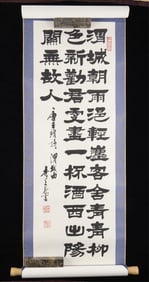 渭城朝雨浥輕塵客舍青青柳
色新勸君更盡一杯酒西出陽
關無故人
唐王維詩 渭城曲